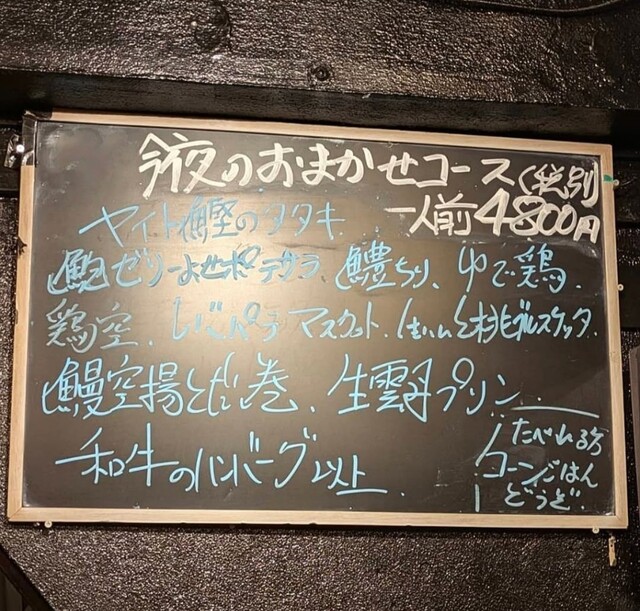 今夜のおまかせコース(税別)
一人前4800円
ヤイト鰹のタタキ
ゼリーよせポテサラ、鱧ちり、ゆで鶏、
鶏空、レバーパテ マスカット、生ハムと桃ブルスケッタ、
鰻空揚とだし巻、生雲丹プリン、
和牛のハンバーグ 以上.
たべれる方
コーンごはん
どうぞ.